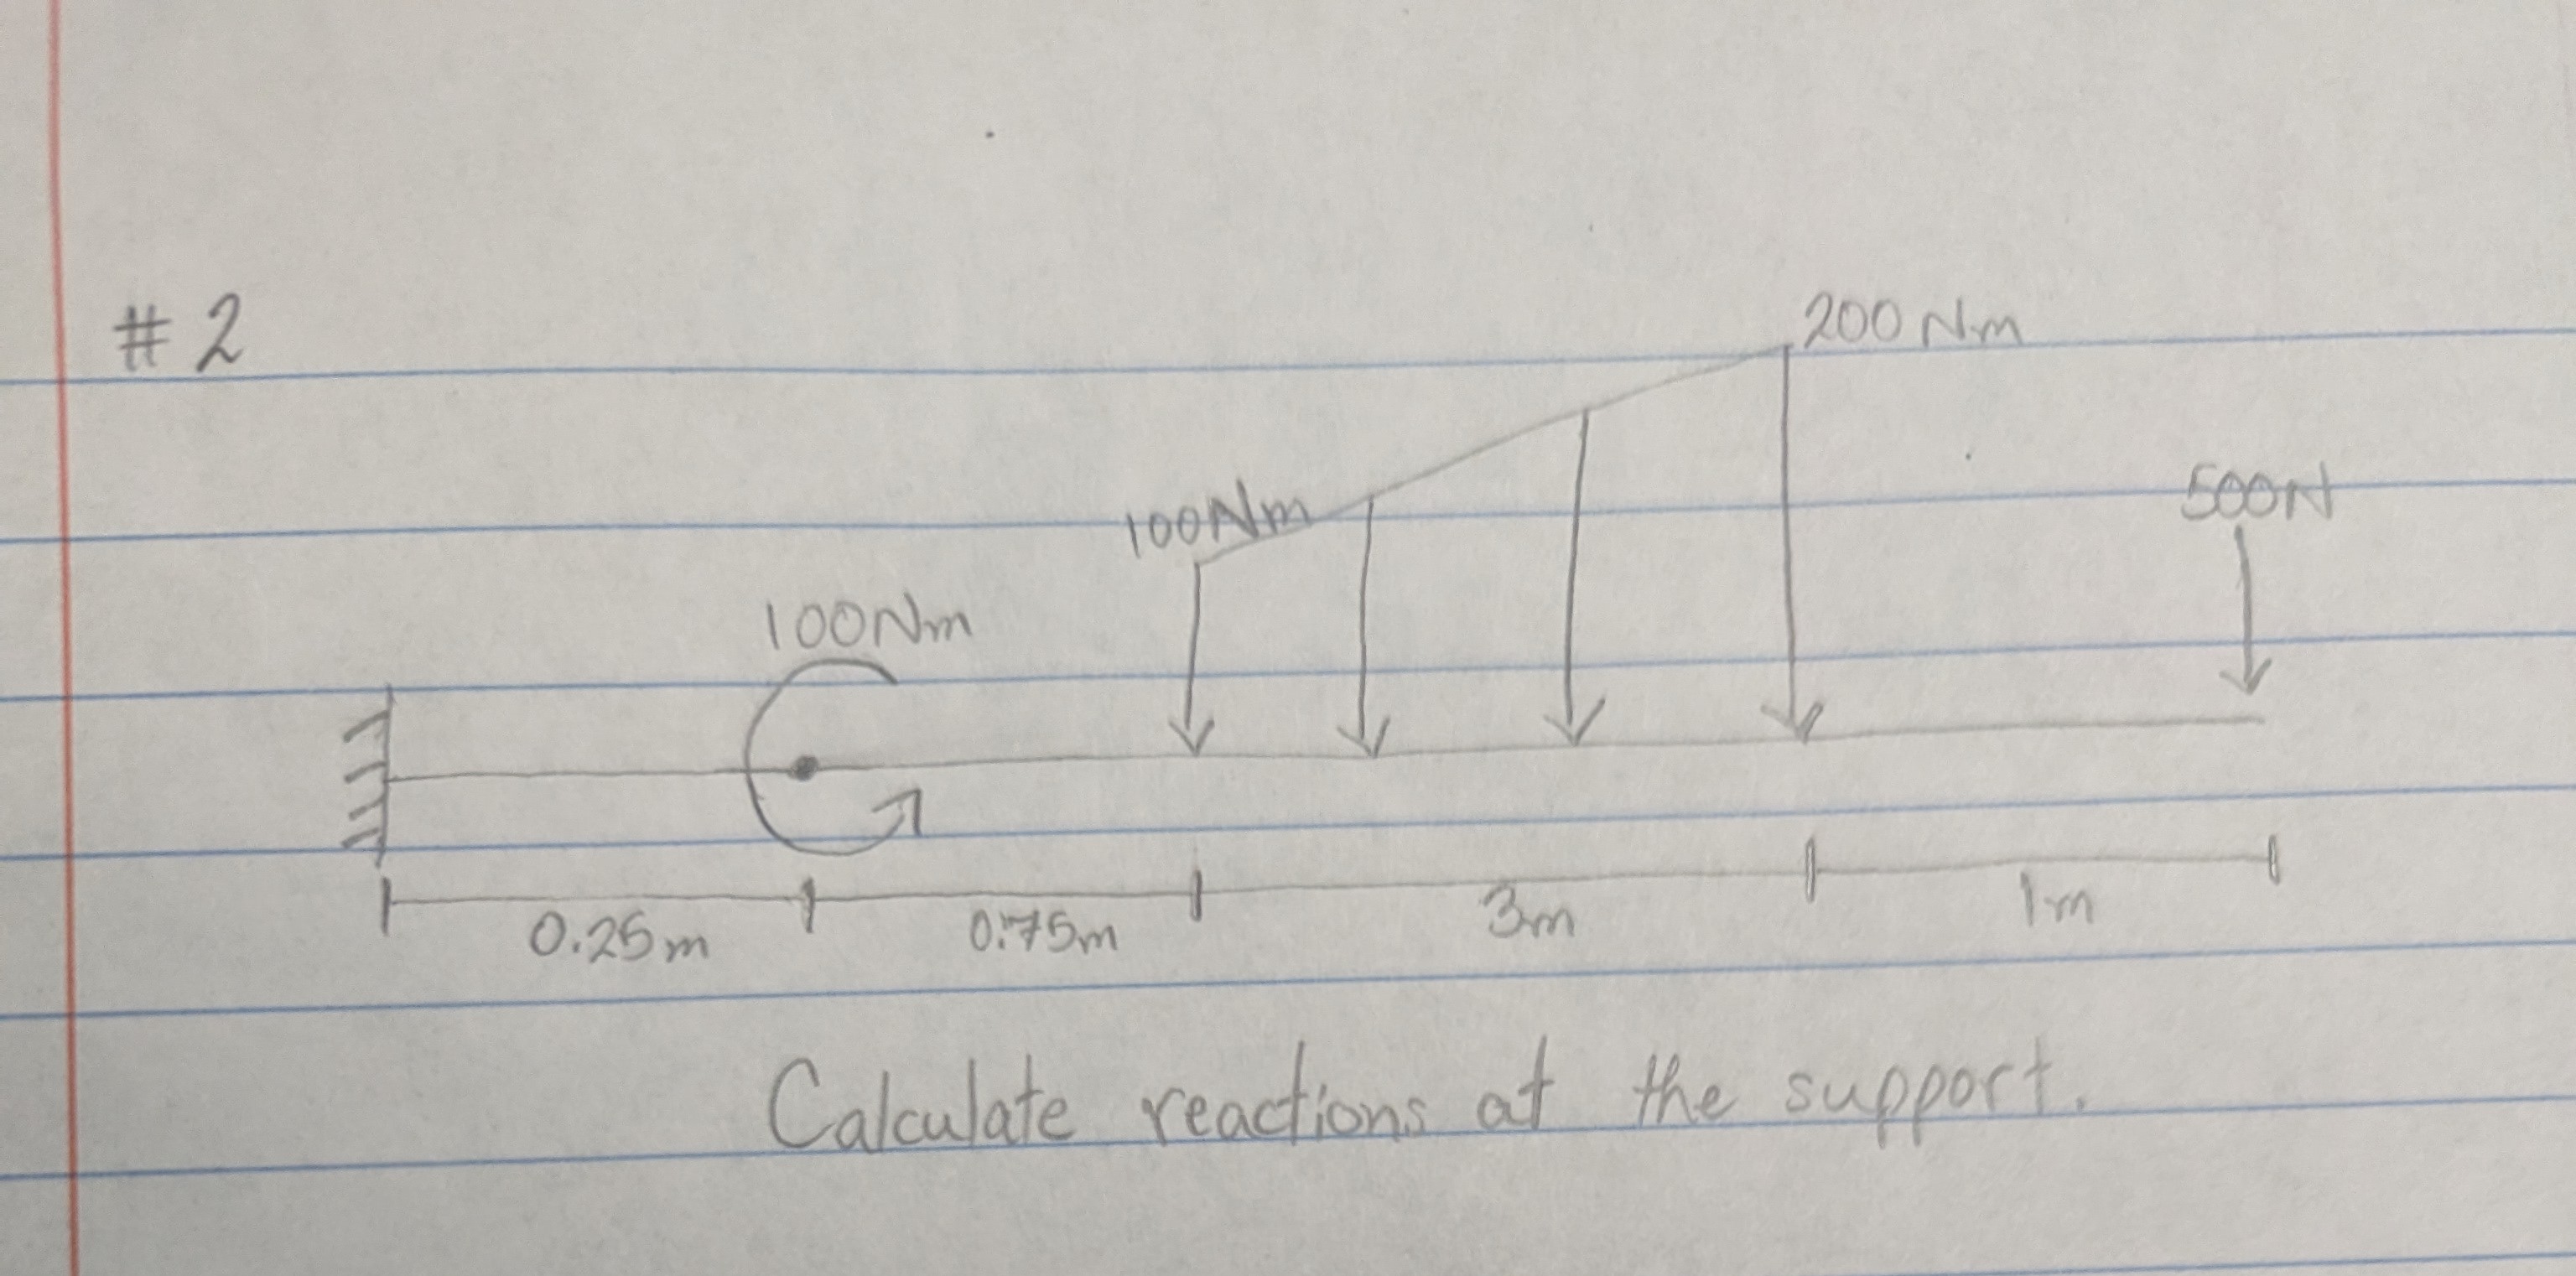 # 2
200 Nm
100Nm
500N
100Nm
0.25m
0.75m
3m
1m
Calculate reactions at the support.